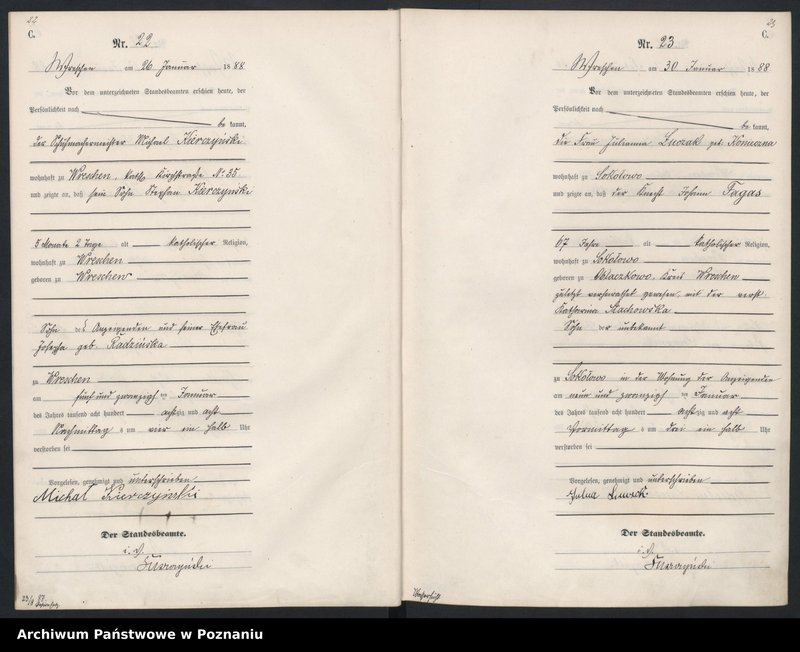 22
C.
Nr. 22
Wreschen am 26 Januar 1888
Vor dem unterzeichneten Standesbeamten erschien heute, der
Persönlichkeit nach
be kannt,
der Schuhmachermeister Michael Kierczyński
wohnhaft zu Wreschen kath. Kirchstraße No 35
und zeigte an, daß sein Sohn Stephan Kierczyński
5 Monate 2 Tage alt katholischer Religion,
wohnhaft zu Wreschen
geboren zu Wreschen
Sohn des Anzeigenden und seiner Ehefrau
Josepha geb. Radzińska
zu Wreschen
am fünf und zwanzigsten Januar
des Jahres tausend acht hundert achtzig und acht
Nachmittag s um vier ein halb Uhr
verstorben sei
Vorgelesen, genehmigt und unterschrieben
Michał Kierczyński
Der Standesbeamte.
i. V.
23
C.
Nr. 23
Wreschen am 30 Januar 1888
Vor dem unterzeichneten Standesbeamten erschien heute, der
Persönlichkeit nach
be kannt,
die Frau Julianna Luczak geb. Konieczna
wohnhaft zu Sokolowo
und zeigte an, daß der Knecht Johann Fagas
67 Jahre alt katholischer Religion,
wohnhaft zu Sokołowo
geboren zu Kreis Wreschen
zuletzt verheirathet gewesen mit der verst.
Katharina Stachowska
Sohn der unbekannt
zu Sokolowo in der Wohnung der Anzeigenden
am neun und zwanzigsten Januar
des Jahres tausend acht hundert achtzig und acht
Vormittag s um drei ein halb Uhr
verstorben sei
Vorgelesen, genehmigt und unterschrieben
Der Standesbeamte.
i. V.
Archiwum Państwowe w Poznaniu